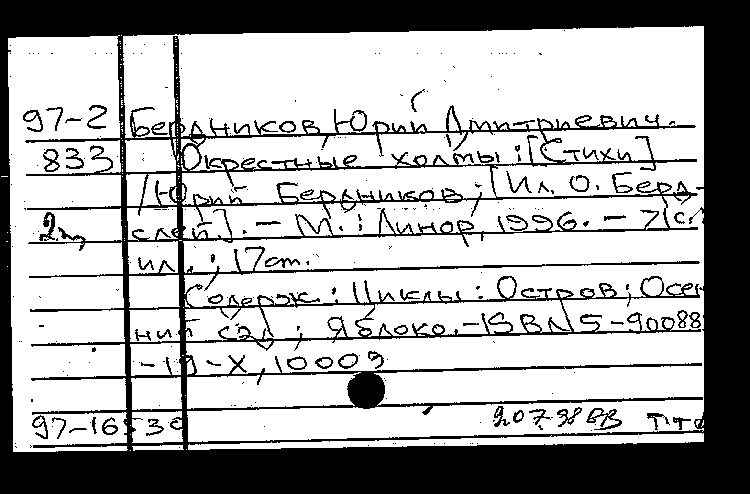 97-2 Бердников, Юрий Дмитриевич.
833 Окрестные холмы: [Стихи]
/Юрий Бердников; [Ил. О. Берд-
2щ слей]. — М.: Линор, 1996. — 71с.
ил.; 17 см.
Содерж.: Циклы: Остров; Осен
ний сад; Яблоко. — ISBN 5-90088
-19-X, 1000э
97-16530 207-98 ВВ